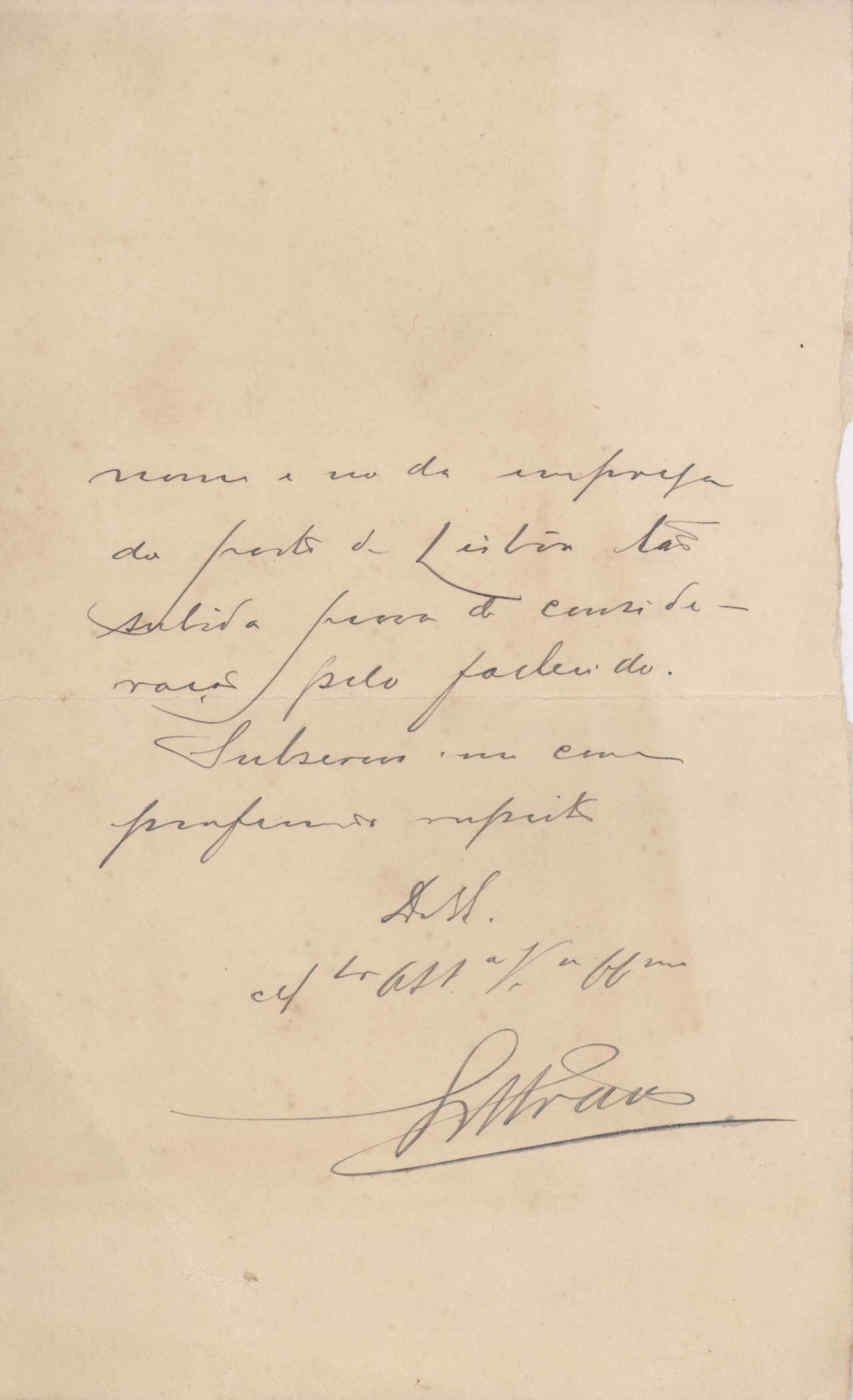 nome e no da empreza
do porto de Lisbôa tão
subida prova de conside-
ração pelo fallecido.
Subscrevo-me com
profundo respeito
De V.